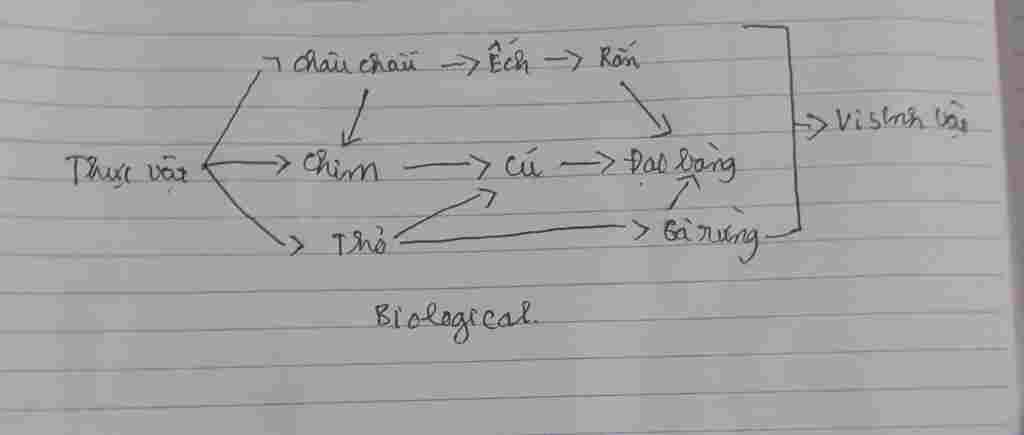 Châu chấu → Ếch → Rắn
Vi sinh vật
Thực vật → Chim → Cú → Đại bàng
Thỏ → Gà rừng
Biological.